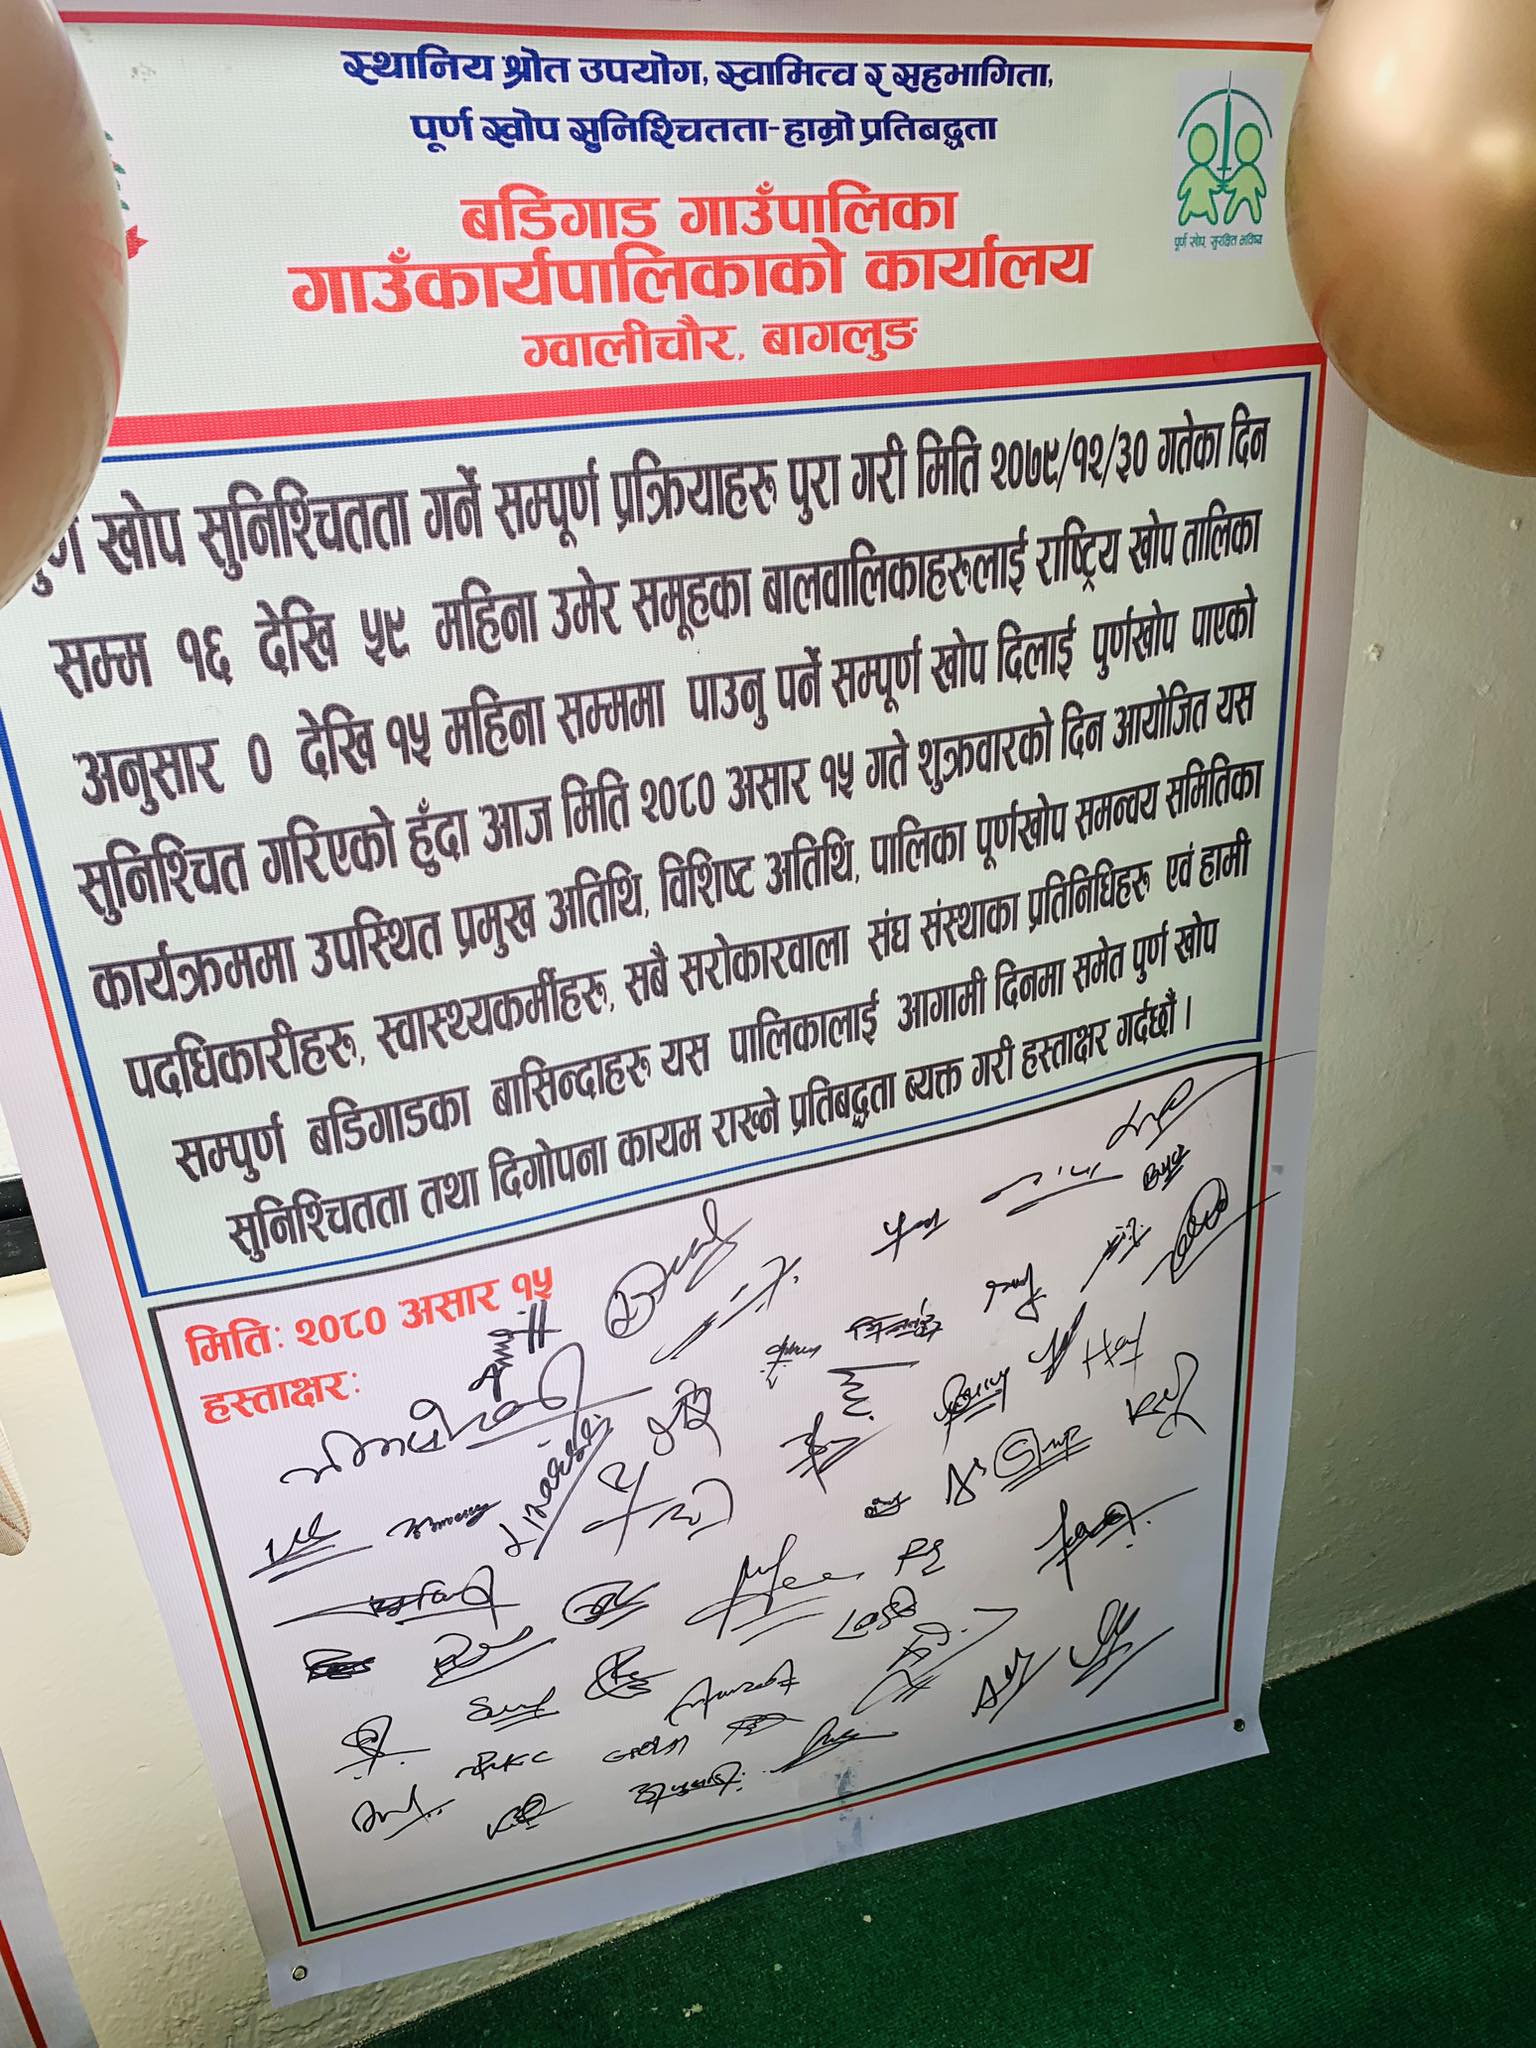 स्थानिय श्रोत उपयोग, स्वामित्व र सहभागिता,
पूर्ण खोप सुनिश्चितता-हाम्रो प्रतिबद्धता
पूर्ण खोप, सुरक्षित भविष्य
बडिगाड गाउँपालिका
गाउँकार्यपालिकाको कार्यालय
ग्वालीचौर, बागलुङ
खोप सुनिश्चितता गर्ने सम्पूर्ण प्रक्रियाहरु पुरा गरी मिति २०७९/१२/३० गतेका दिन
सम्म १६ देखि ५९ महिना उमेर समूहका बालवालिकाहरुलाई राष्ट्रिय खोप तालिका
अनुसार ० देखि १५ महिना सम्ममा पाउनु पर्ने सम्पूर्ण खोप दिलाई पुर्णखोप पाएको
सुनिश्चित गरिएको हुँदा आज मिति २०८० असार १५ गते शुक्रवारको दिन आयोजित यस
कार्यक्रममा उपस्थित प्रमुख अतिथि, विशिष्ट अतिथि, पालिका पूर्णखोप समन्वय समितिका
पदधिकारीहरु, स्वास्थ्यकर्मीहरु, सबै सरोकारवाला संघ संस्थाका प्रतिनिधिहरु एवं हामी
सम्पुर्ण बडिगाडका बासिन्दाहरु यस पालिकालाई आगामी दिनमा समेत पुर्ण खोप
सुनिश्चितता तथा दिगोपना कायम राख्ने प्रतिबद्धता ब्यक्त गरी हस्ताक्षर गर्दछौं ।
मिति: २०८० असार १५
हस्ताक्षर: